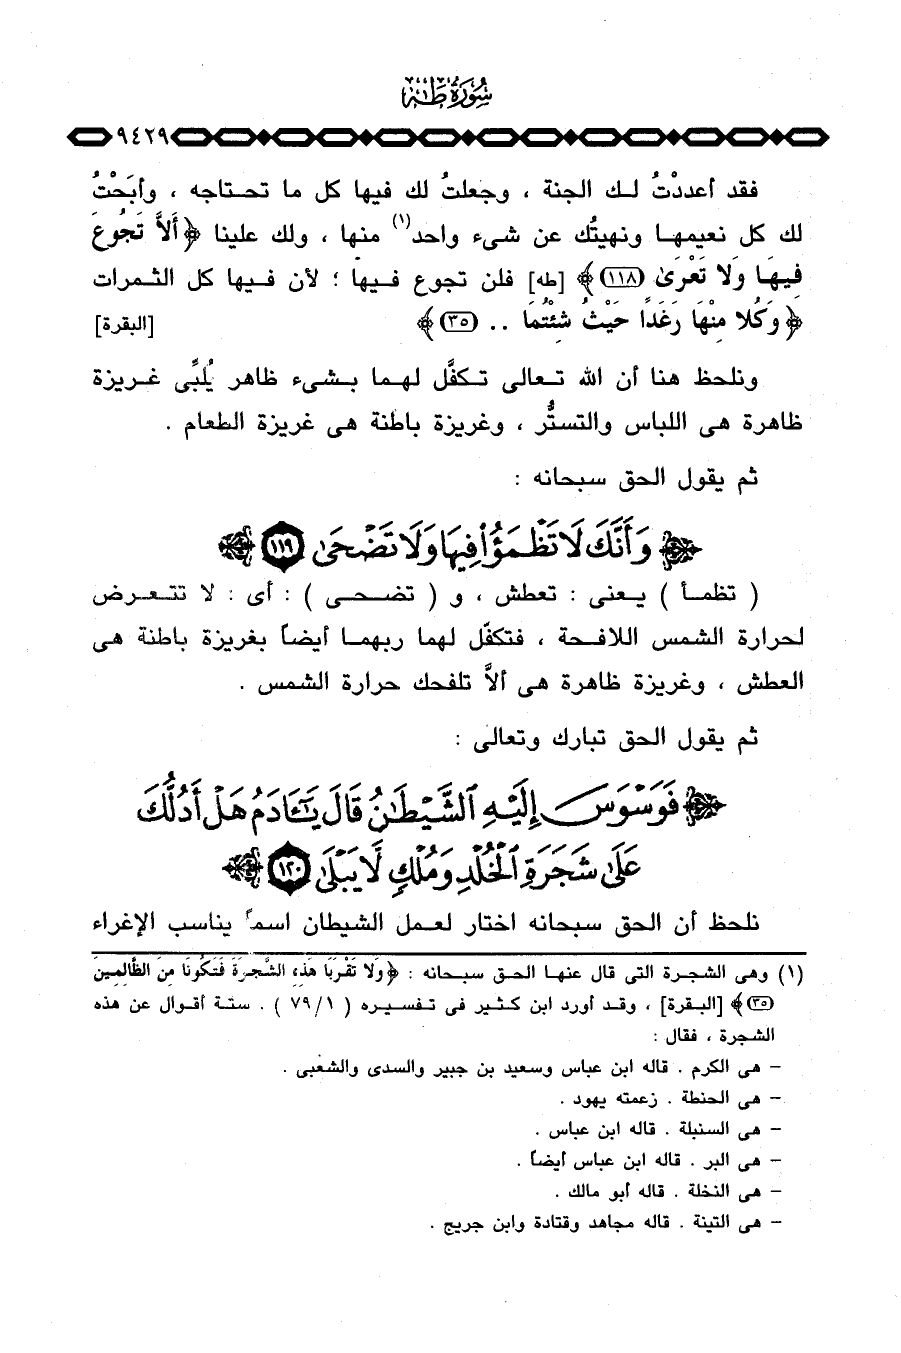 سُورَةُ طٰهٰ
٩٤٢٩
فقد أعددْتُ لـك الجنة ، وجعلتُ لك فيها كل ما تحـتاجه ، وأبَحْتُ
لك كل نعيمهـا ونهيتُك عن شىء واحد(١) منها ، ولك علينا ﴿ أَلاَّ تَجُوعَ
فِيهَا وَلا تَعْرَىٰ (١١٨) ﴾ [طه] فلن تجوع فـيها ؛ لأن فـيها كل الثـمرات
﴿ وَكُلا مِنْهَا رَغَدًا حَيْثُ شِئْتُمَا .. (٣٥) ﴾ [البقرة]
ونلحظ هنا أن الله تـعالى تـكفَّل لهـما بـشىء ظاهر يُلبِّى غـريزة
ظاهرة هى اللباس والتستُّر ، وغريزة باطنة هى غريزة الطعام .
ثم يقول الحق سبحانه :
﴿ وَأَنَّكَ لَا تَظْمَؤُا۟ فِيهَا وَلَا تَضْحَىٰ ١١٩ ﴾
( تظمـأ ) يـعنى : تعطش ، و ( تضـحى ) : أى : لا تتـعـرض
لحرارة الشمس اللافـحة ، فتكفَّل لهما ربهمـا أيضاً بغريزة باطنة هى
العطش ، وغريزة ظاهرة هى ألاَّ تلفحك حرارة الشمس .
ثم يقول الحق تبارك وتعالى :
﴿ فَوَسْوَسَ إِلَيْهِ ٱلشَّيْطَٰنُ قَالَ يَٰٓـَٔادَمُ هَلْ أَدُلُّكَ
عَلَىٰ شَجَرَةِ ٱلْخُلْدِ وَمُلْكٍ لَّا يَبْلَىٰ ١٢٠ ﴾
نلحظ أن الحق سبحانه اختار لعـمل الشيطان اسماً يناسب الإغراء
(١) وهى الشجرة التى قال عنهـا الحق سبـحانه : ﴿ وَلا تَقْرَبَا هَذِهِ الشَّجَرَةَ فَتَكُونَا مِنَ الظَّالِمِينَ
(٣٥) ﴾ [البـقرة] ، وقـد أورد ابن كـثير فى تـفسـيره ( ١/ ٧٩ ) . ستـة أقـوال عن هذه
الشجرة ، فقال :
- هى الكرم . قاله ابن عباس وسعيد بن جبير والسدى والشعبى .
- هى الحنطة . زعمته يهود .
- هى السنبلة . قاله ابن عباس .
- هى البر . قاله ابن عباس أيضاً .
- هى النخلة . قاله أبو مالك .
- هى التينة . قاله مجاهد وقتادة وابن جريج .